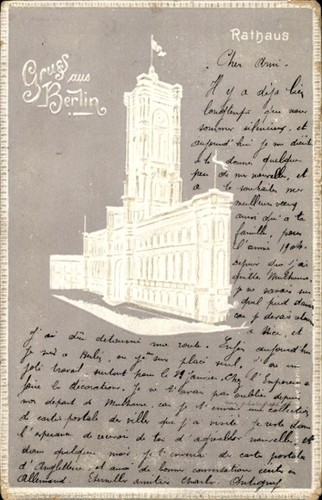 Rathaus
Gruss aus
Berlin
Cher Ami.
Il y a déjà bien
longtemps que nous
sommes silencieux, et
aujourd'hui je me décide
à te donner quelque
peu de mes nouvelles, et
à te souhaiter mes
meilleurs vœux
ainsi qu'à ta
famille, pour
l'année 1904.
depuis que j'ai
quitté Mulhouse,
je ne savais sur
quel pied danser
car je devais aller
à Nice, et
j'ai dû détourner ma route. Enfin aujourd'hui
je suis à Berlin, en place, j'ai un
joli travail, surtout pour le 27 janvier, chez l'Empereur à
faire la décoration. Je ne t'avais pas oublié depuis
mon départ de Mulhouse, car je t'envoie une collection
de cartes postales de villes que j'ai visité. Je reste dans
l'espérance de recevoir de toi d'agréables nouvelles, et
dans quelques mois je t'enverrai de cartes postales
d'Angleterre, et aussi de bonne conversation écrite en
Allemand. amitiés Charles